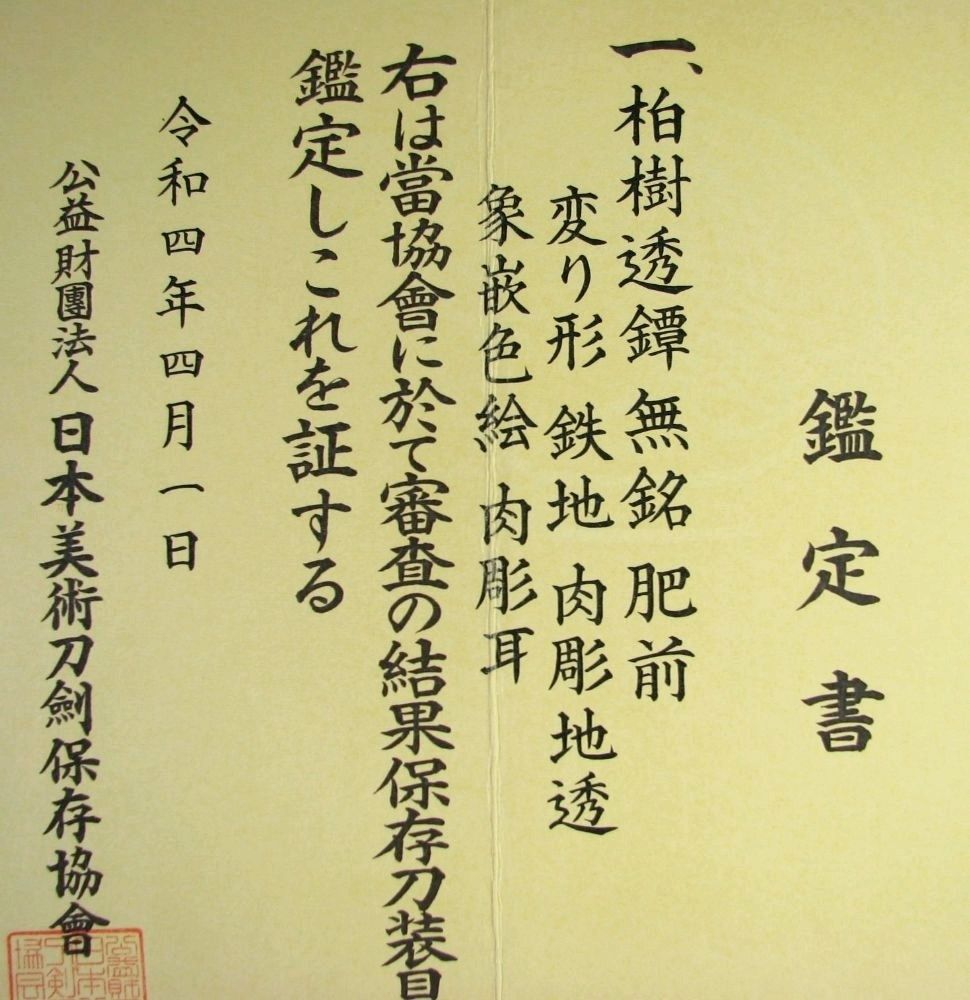 鑑定書
一、柏樹透鐔 無銘 肥前
変り形 鉄地 肉彫地透
象嵌色絵 肉彫耳
右は當協會に於て審査の結果保存刀装具
鑑定しこれを証する
令和四年四月一日
公益財團法人 日本美術刀劍保存協會